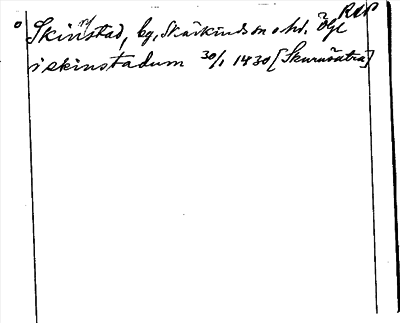 RAP
Skinstad, by, Skärkinds sn o hd. Ögl
i skinstadum 30/1 1430 [Skurusätra]